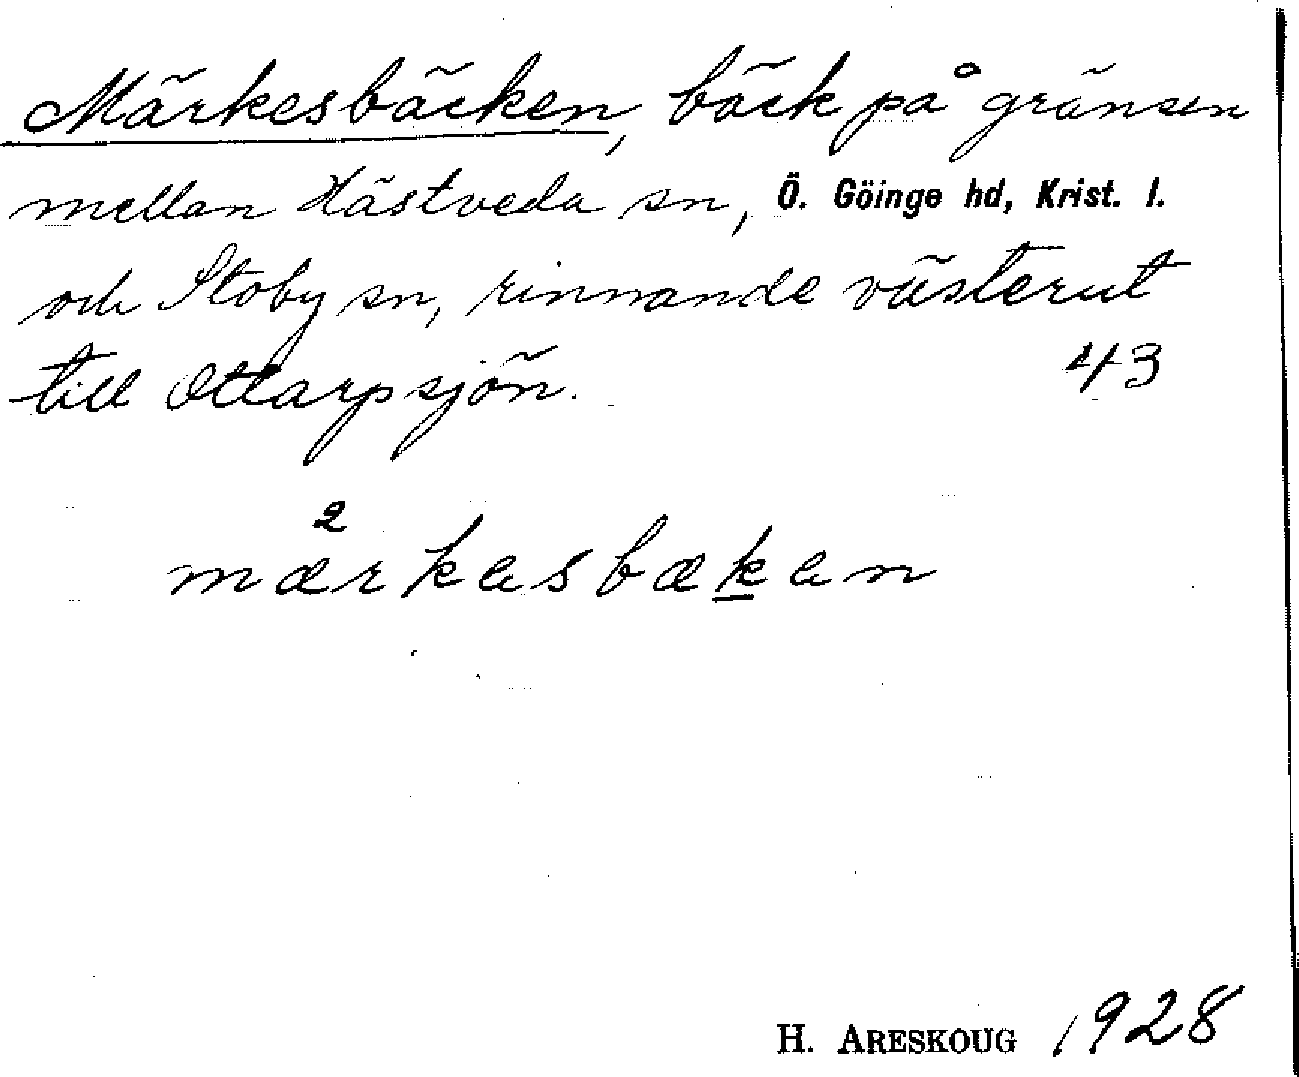 Märkesbäcken, bäck på gränsen
mellan Hästveda sn, Ö. Göinge hd, Krist. l.
och Stoby sn, rinnande västerut
till Ottarpsjön. 43
2
mærkesbæken
H. ARESKOUG 1928